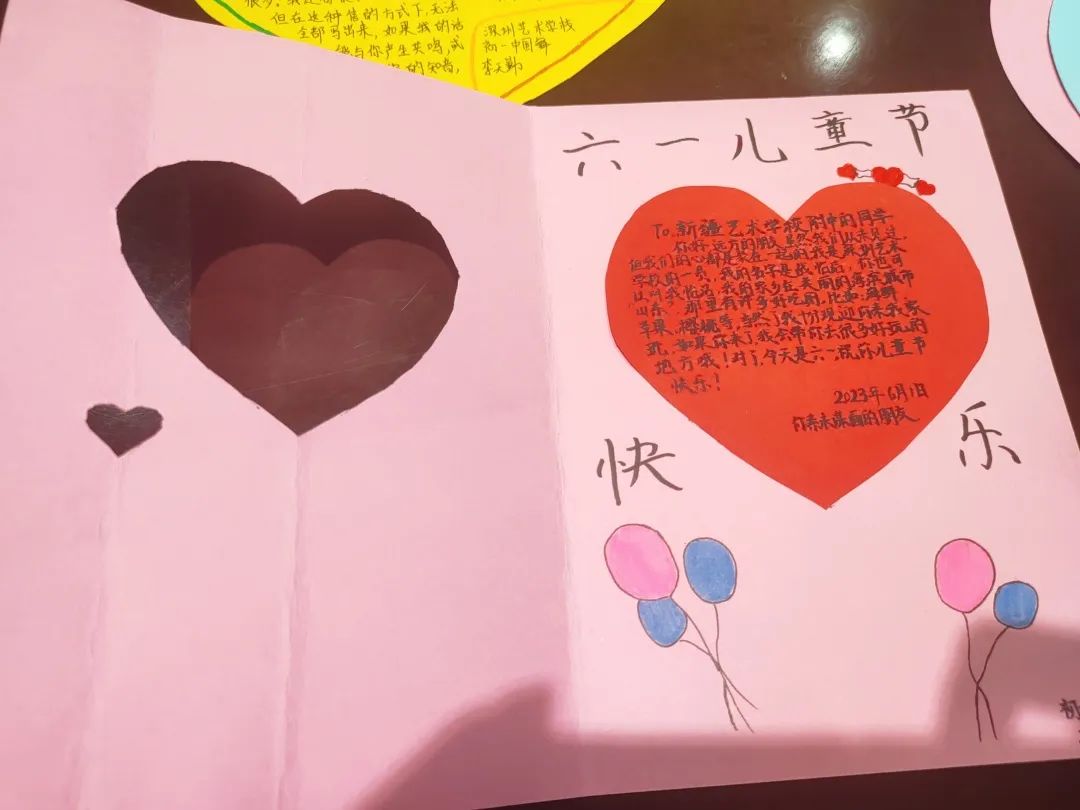 但在这种信的方式下,无法
全部写出来,如果我的话
能与你产生共鸣,或
的知音,
深圳艺术学校
高一中国舞
六一儿童节
To.新疆艺术学校附中的同学
你好,远方的朋友,虽然我们从未见过
但我们的心都是紧在一起的,我是深圳艺术
学校的一员,我的名字是战怡冶,你也可
山东",那里有许多好吃的,比如:海鲜
苹果,樱桃等,当然了我们欢迎你来我家
玩,如果你来了,我会带你去很多好玩的
地方哦!对了,今天是六一,祝你儿童节
快乐!
2023年6月1日
你素未谋面的朋友
快 乐
初